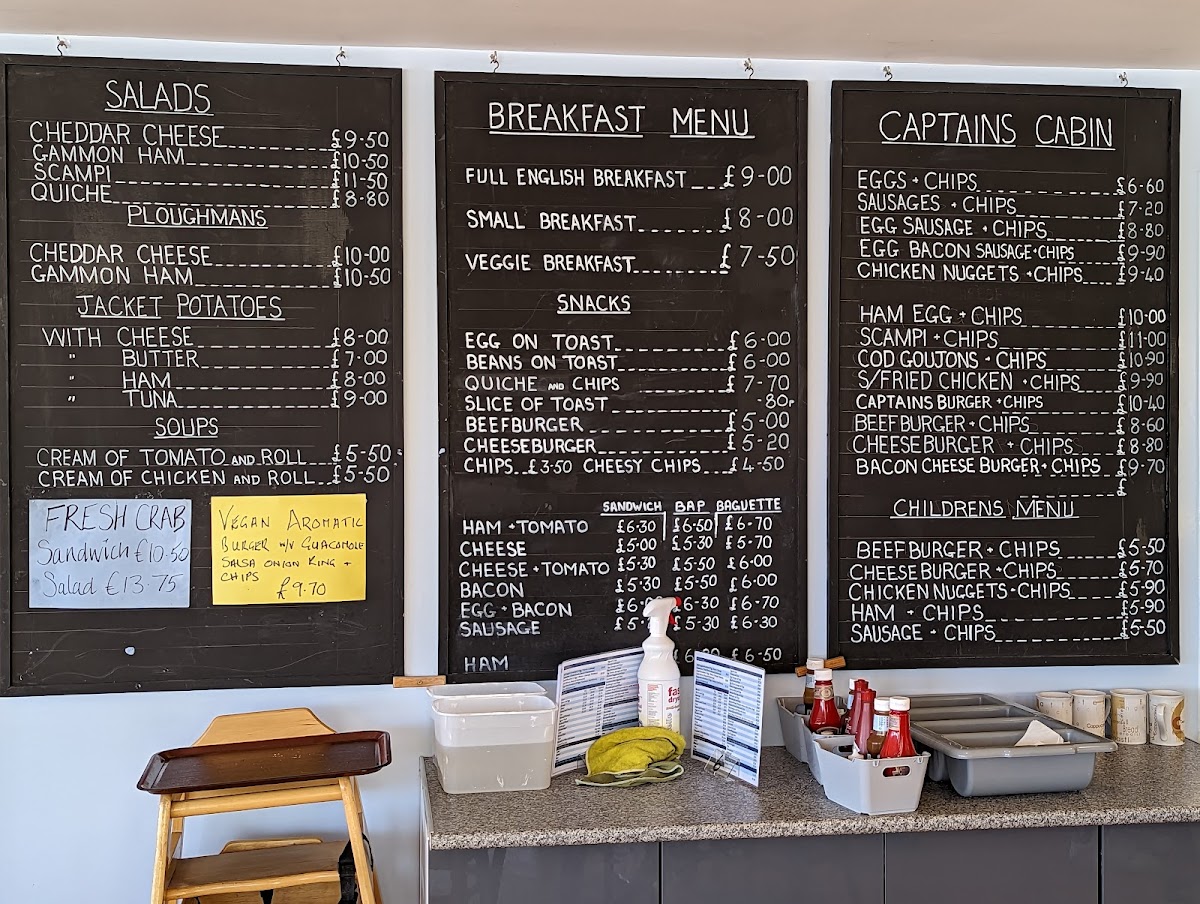 SALADS
CHEDDAR CHEESE £9-50
GAMMON HAM £10-50
SCAMPI £11-50
QUICHE £8-80
PLOUGHMANS
CHEDDAR CHEESE £10-00
GAMMON HAM £10-50
JACKET POTATOES
WITH CHEESE £8-00
" BUTTER £7-00
" HAM £8-00
" TUNA £9-00
SOUPS
CREAM OF TOMATO AND ROLL £5-50
CREAM OF CHICKEN AND ROLL £5-50
FRESH CRAB
Sandwich £10.50
Salad £13.75
VEGAN AROMATIC
BURGER W/V GUACAMOLE
SALSA ONION RING +
CHIPS £9.70
BREAKFAST MENU
FULL ENGLISH BREAKFAST £9-00
SMALL BREAKFAST £8-00
VEGGIE BREAKFAST £7-50
SNACKS
EGG ON TOAST £6-00
BEANS ON TOAST £6-00
QUICHE AND CHIPS £7-70
SLICE OF TOAST -80P
BEEFBURGER £5-00
CHEESEBURGER £5-20
CHIPS £3-50 CHEESY CHIPS £4-50
SANDWICH BAP BAGUETTE
HAM + TOMATO £6-30 £6-50 £6-70
CHEESE £5-00 £5-30 £5-70
CHEESE + TOMATO £5-30 £5-50 £6-00
BACON £5-30 £5-50 £6-00
EGG + BACON £6- £6-30 £6-70
SAUSAGE £5- £5-30 £6-30
HAM £6-50
CAPTAINS CABIN
EGGS + CHIPS £6-60
SAUSAGES + CHIPS £7-20
EGG SAUSAGE + CHIPS £8-80
EGG BACON SAUSAGE + CHIPS £9-90
CHICKEN NUGGETS + CHIPS £9-40
HAM EGG + CHIPS £10-00
SCAMPI + CHIPS £11-00
COD GOUTONS + CHIPS £10-90
S/FRIED CHICKEN + CHIPS £9-90
CAPTAINS BURGER + CHIPS £10-40
BEEFBURGER + CHIPS £8-60
CHEESEBURGER + CHIPS £8-80
BACON CHEESE BURGER + CHIPS £9-70
£
CHILDRENS MENU
BEEFBURGER + CHIPS £5-50
CHEESEBURGER + CHIPS £5-70
CHICKEN NUGGETS + CHIPS £5-90
HAM + CHIPS £5-90
SAUSAGE + CHIPS £5-50